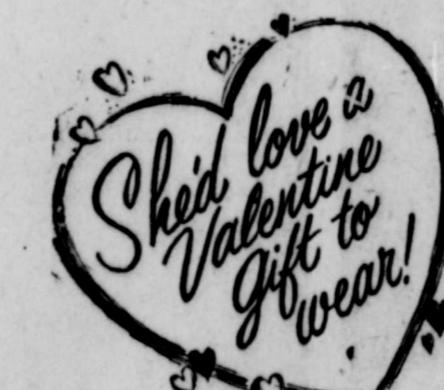 She'd love a
Valentine
gift to
wear!